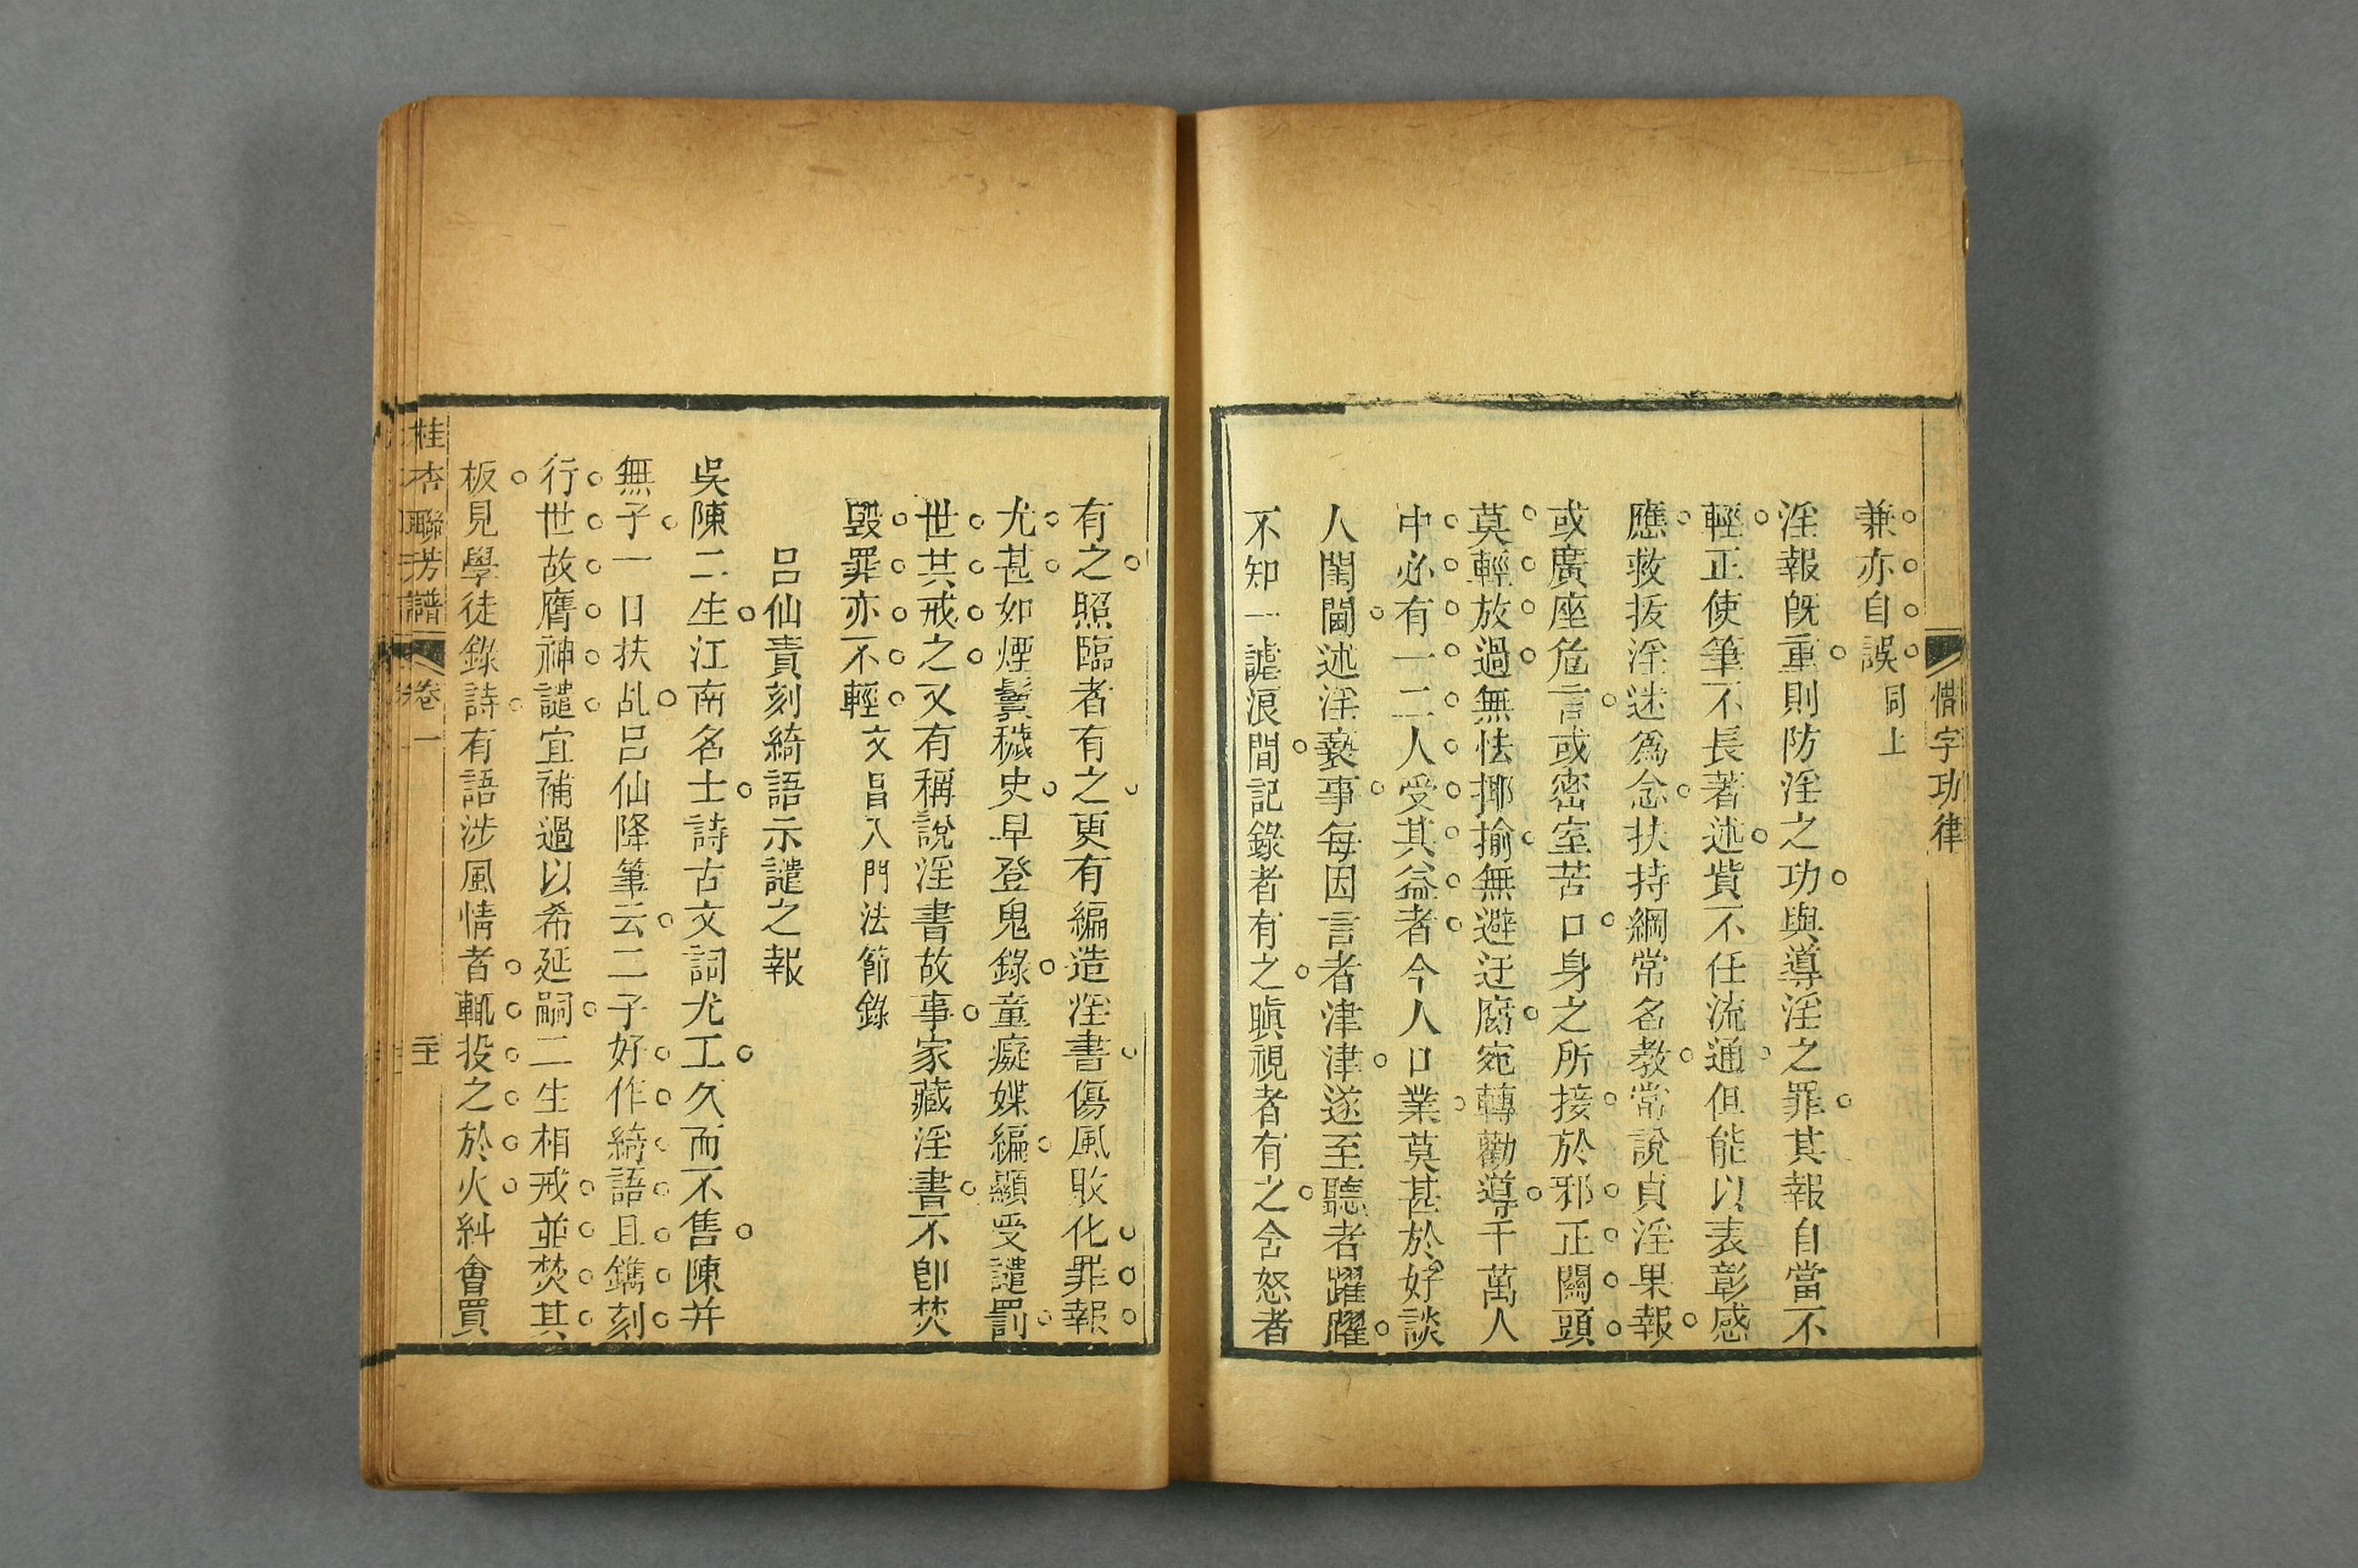 惜字功律
兼亦自誤同上
淫報旣重則防淫之功與導淫之罪其報自當不
輕正使筆不長著述貲不任流通但能以表彰感
應救拔淫迷爲念扶持綱常名教常說貞淫果報
或廣座危言或密室苦口身之所接於邪正關頭
莫輕放過無怯揶揄無避迂腐宛轉勸導千萬人
中必有一二人受其益者今人口業莫甚於好談
人閨閫述淫褻事每因言者津津遂至聽者躍躍
不知一謔浪間記錄者有之瞋視者有之含怒者
有之照臨者有之更有編造淫書傷風敗化罪報
尤甚如煙鬟穢史早登鬼錄童癡媟編顯受譴罰
世其戒之又有稱說淫書故事家藏淫書不卽焚
毀罪亦不輕文昌入門法節錄
呂仙責刻綺語示譴之報
吳陳二生江南名士詩古文詞尤工久而不售陳幷
無子一日扶乩呂仙降筆云二子好作綺語且鐫刻
行世故膺神譴宜補過以希延嗣二生相戒並焚其
板見學徒錄詩有語涉風情者輒投之於火糾會買
桂杏聯芳譜 卷一 二十